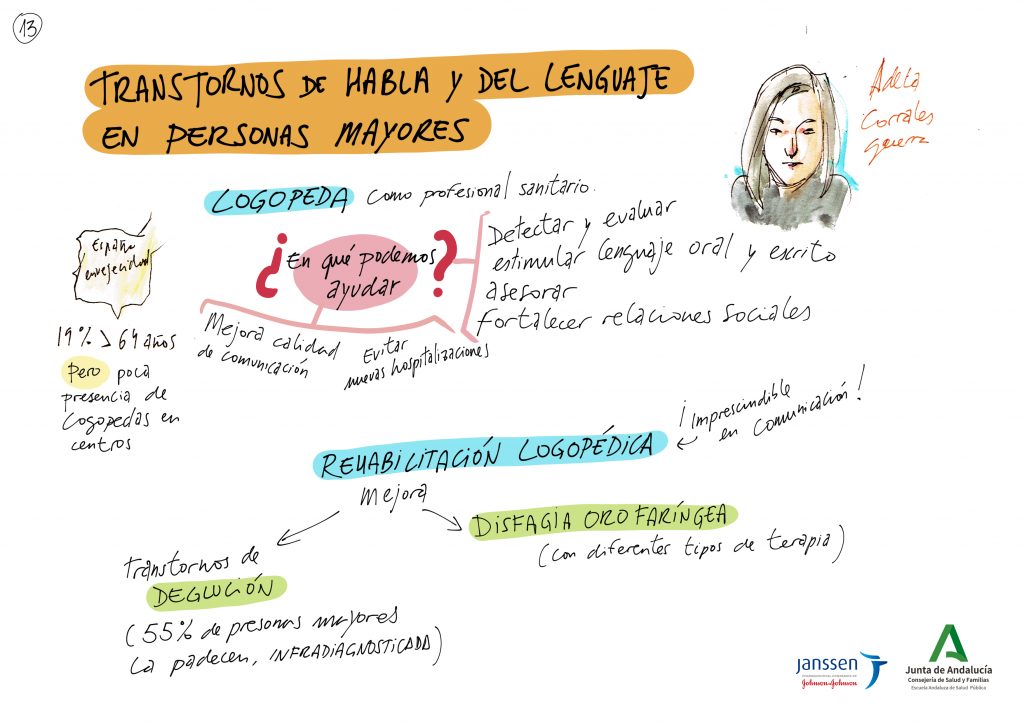 13
TRANSTORNOS DE HABLA Y DEL LENGUAJE
EN PERSONAS MAYORES
Adela
Corrales
guerra
LOGOPEDA como profesional sanitario.
España
envejecida
19% > 64 años
Pero poca
presencia de
Logopedas en
centros
¿En qué podemos
ayudar?
Detectar y evaluar
estimular lenguaje oral y escrito
asesorar
fortalecer relaciones sociales
Mejora calidad
de comunicación
Evitar
nuevas hospitalizaciones
¡Imprescindible
en comunicación!
REHABILITACIÓN LOGOPÉDICA
Mejora
Transtornos de
DEGLUCIÓN
(55% de presonas mayores
la padecen, INFRADIAGNOSTICADA)
DISFAGIA OROFARÍNGEA
(con diferentes tipos de terapia)
janssen
PHARMACEUTICAL COMPANIES OF
Johnson&Johnson
Junta de Andalucía
Consejería de Salud y Familias
Escuela Andaluza de Salud Pública